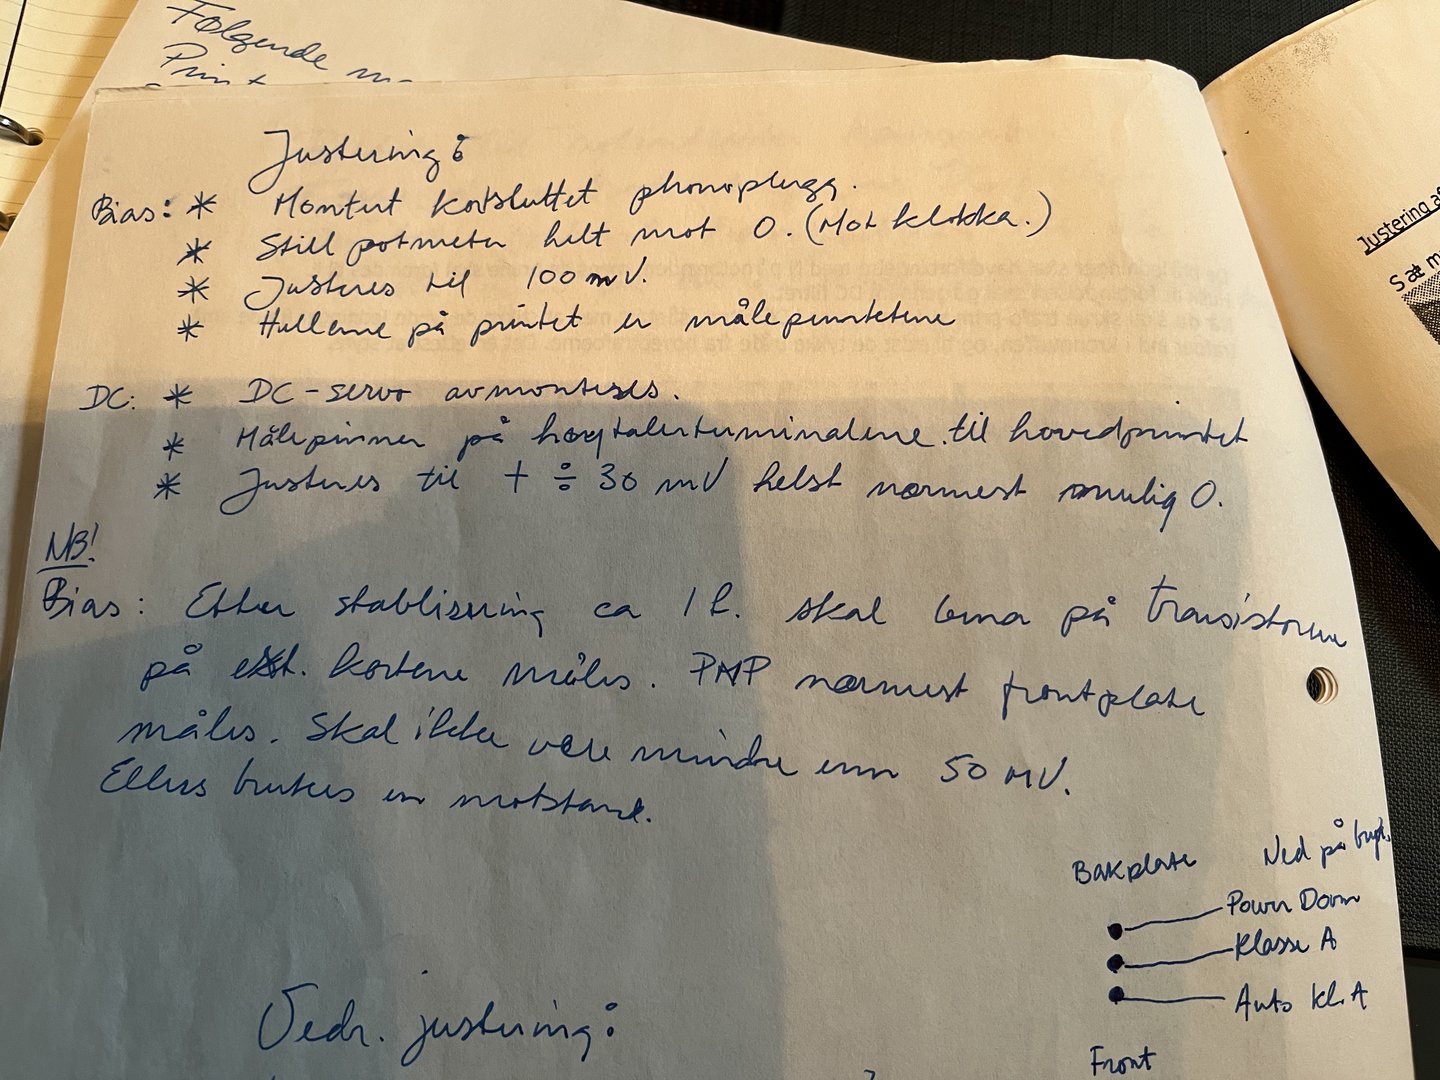 Følgende
Print
Justering:
Bias: * Montert kortsluttet phonoplugg.
* Still potmeter helt mot 0. (Mot klokka.)
* Justeres til 100 mV.
* Hullene på printet er målepunktene
DC: * DC-servo avmonteres.
* Målepinner på høytalerterminalene til hovedprintet
* Justeres til + ÷ 30 mV helst nærmest mulig 0.
NB!
Bias: Etter stablisering ca 1 h. skal bena på transistorene
på ext. kortene måles. PNP nærmest frontplate
måles. Skal ikke være mindre enn 50 MV.
Ellers brukes en motstand.
Bakplate Ned på
Power Down
Klasse A
Auto kl. A
Vedr. justering:
Front
Justering af
Sæt